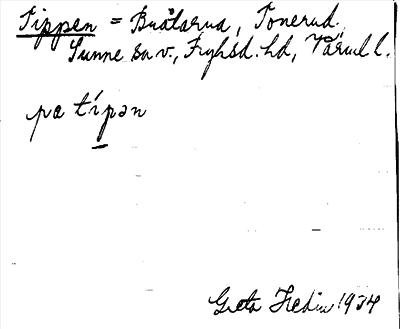 Tippen = Buålarud, Tonerud.
Sunne sn v., Fryksd. hd, Värml l.
pa típən
Greta Hedin 1934